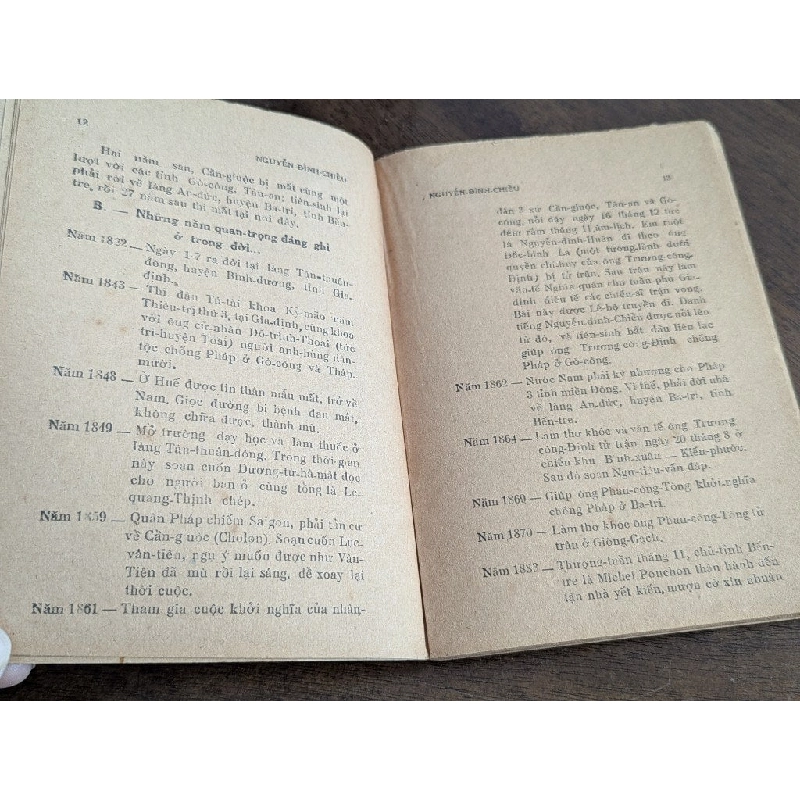 12
NGUYỄN ĐÌNH-CHIỂU
Hai năm sau, Cần-giuộc bị mất cùng một
lượt với các tỉnh Gò-công, Tân-an; tiên-sinh lại
phải rời về làng An-đức, huyện Ba-tri, tỉnh Bến-
tre, rồi 27 năm sau thì mất tại nơi đây.
B. — Những năm quan-trọng đáng ghi
ở trong đời...
Năm 1822 — Ngày 1-7 ra đời tại làng Tân-thuận-
đông, huyện Bình-dương, tỉnh Gia-
định.
Năm 1843 — Thi đậu Tú-tài khoa Kỷ-mão năm
Thiệu-trị thứ 3, tại Gia-định, cùng khoa
với ông cử-nhân Đỗ-trình-Thoại (tức
tri-huyện Toại) người anh-hùng dân-
tộc chống Pháp ở Gò-công và Tháp-
mười.
Năm 1848 — Ở Huế được tin thân mẫu mất, trở về
Nam. Giọc đường bị bệnh đau mắt,
không chữa được, thành mù.
Năm 1849 — Mở trường dạy học và làm thuốc ở
làng Tân-thuận-đông. Trong thời-gian
này soạn cuốn Dương-từ-hà-mật đọc
cho người bạn ở cùng tổng là Lê-
quang-Thịnh chép.
Năm 1859 — Quân Pháp chiếm Sa gon, phải tản cư
về Cần-g uộc (Cholon). Soạn cuốn Lục-
vân-tiên, ngụ ý muốn được như Vân-
Tiên đã mù rồi lại sáng, để xoay lại
thời cuộc.
Năm 1861 — Tham gia cuộc khởi nghĩa của nhân-
NGUYỄN-ĐÌNH-CHIỂU
13
dân 3 sứ Cần-giuộc, Tân-an và Gò-
công, nổi dậy ngày 16 tháng 12 tức
đêm rằm tháng 11 âm-lịch. Em ruột
là Nguyễn-đình-Huân đi theo ông
Đốc-binh La (một tướng-lĩnh dưới
quyền chỉ-huy của ông Trương công
Định) bị tử trận. Sau trận này làm
văn-tế Nghĩa quân cho tuần phủ Gia-
định điếu tế các chiến-sĩ trận vong.
Bài này được Lễ-bộ truyền đi. Danh
tiếng Nguyễn-đình-Chiểu được nổi lên
từ đó, và tiên-sinh bắt đầu liên lạc
giúp ông Trương công-Định chống
Pháp ở Gò-công.
Năm 1862 — Nước Nam phải ký nhượng cho Pháp
3 tỉnh miền Đông. Vì thế, phải dời nhà
về làng An-đức, huyện Ba-tri, tỉnh
Bến-tre.
Năm 1864 — Làm thơ khóc và văn tế ông Trương
công-Định tử trận ngày 20 tháng 8 ở
chiến khu B nh-xuân — Kiểng-phước.
Sau đó soạn Ngư-tiều-vấn đáp.
Năm 1869 — Giúp ông Phan-công-Tòng khởi-nghĩa
chống Pháp ở Ba-tri.
Năm 1870 — Làm thơ khóc ông Phan-công-Tòng tử
trận ở Giồng-Gạch.
Năm 1883 — Thượng-tuần tháng 11, chủ-tỉnh Bến-
tre là Michel Ponchon thân hành đến
tận nhà yết kiến, mượn cớ xin nhuận